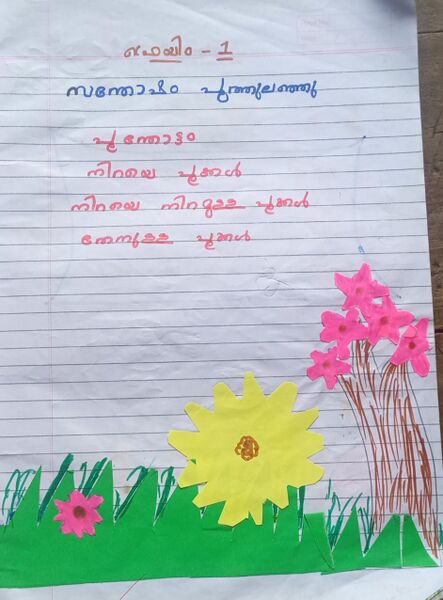 ഫ്രെയിം - 1
സന്തോഷം പൂത്തുലഞ്ഞു
പൂന്തോട്ടം
നിറയെ പൂക്കൾ
നിറയെ നിറമുള്ള പൂക്കൾ
തേനുള്ള പൂക്കൾ